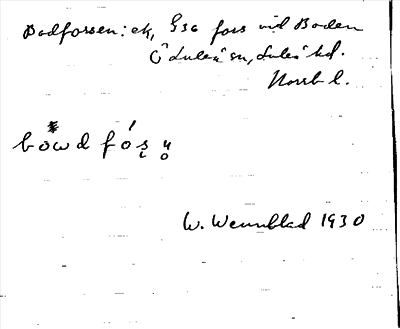 Bodforsen: ek, G36 fors vid Boden
Ö Luleå sn, Luleå hd.
Norrb l.
W. Wennblad 1930